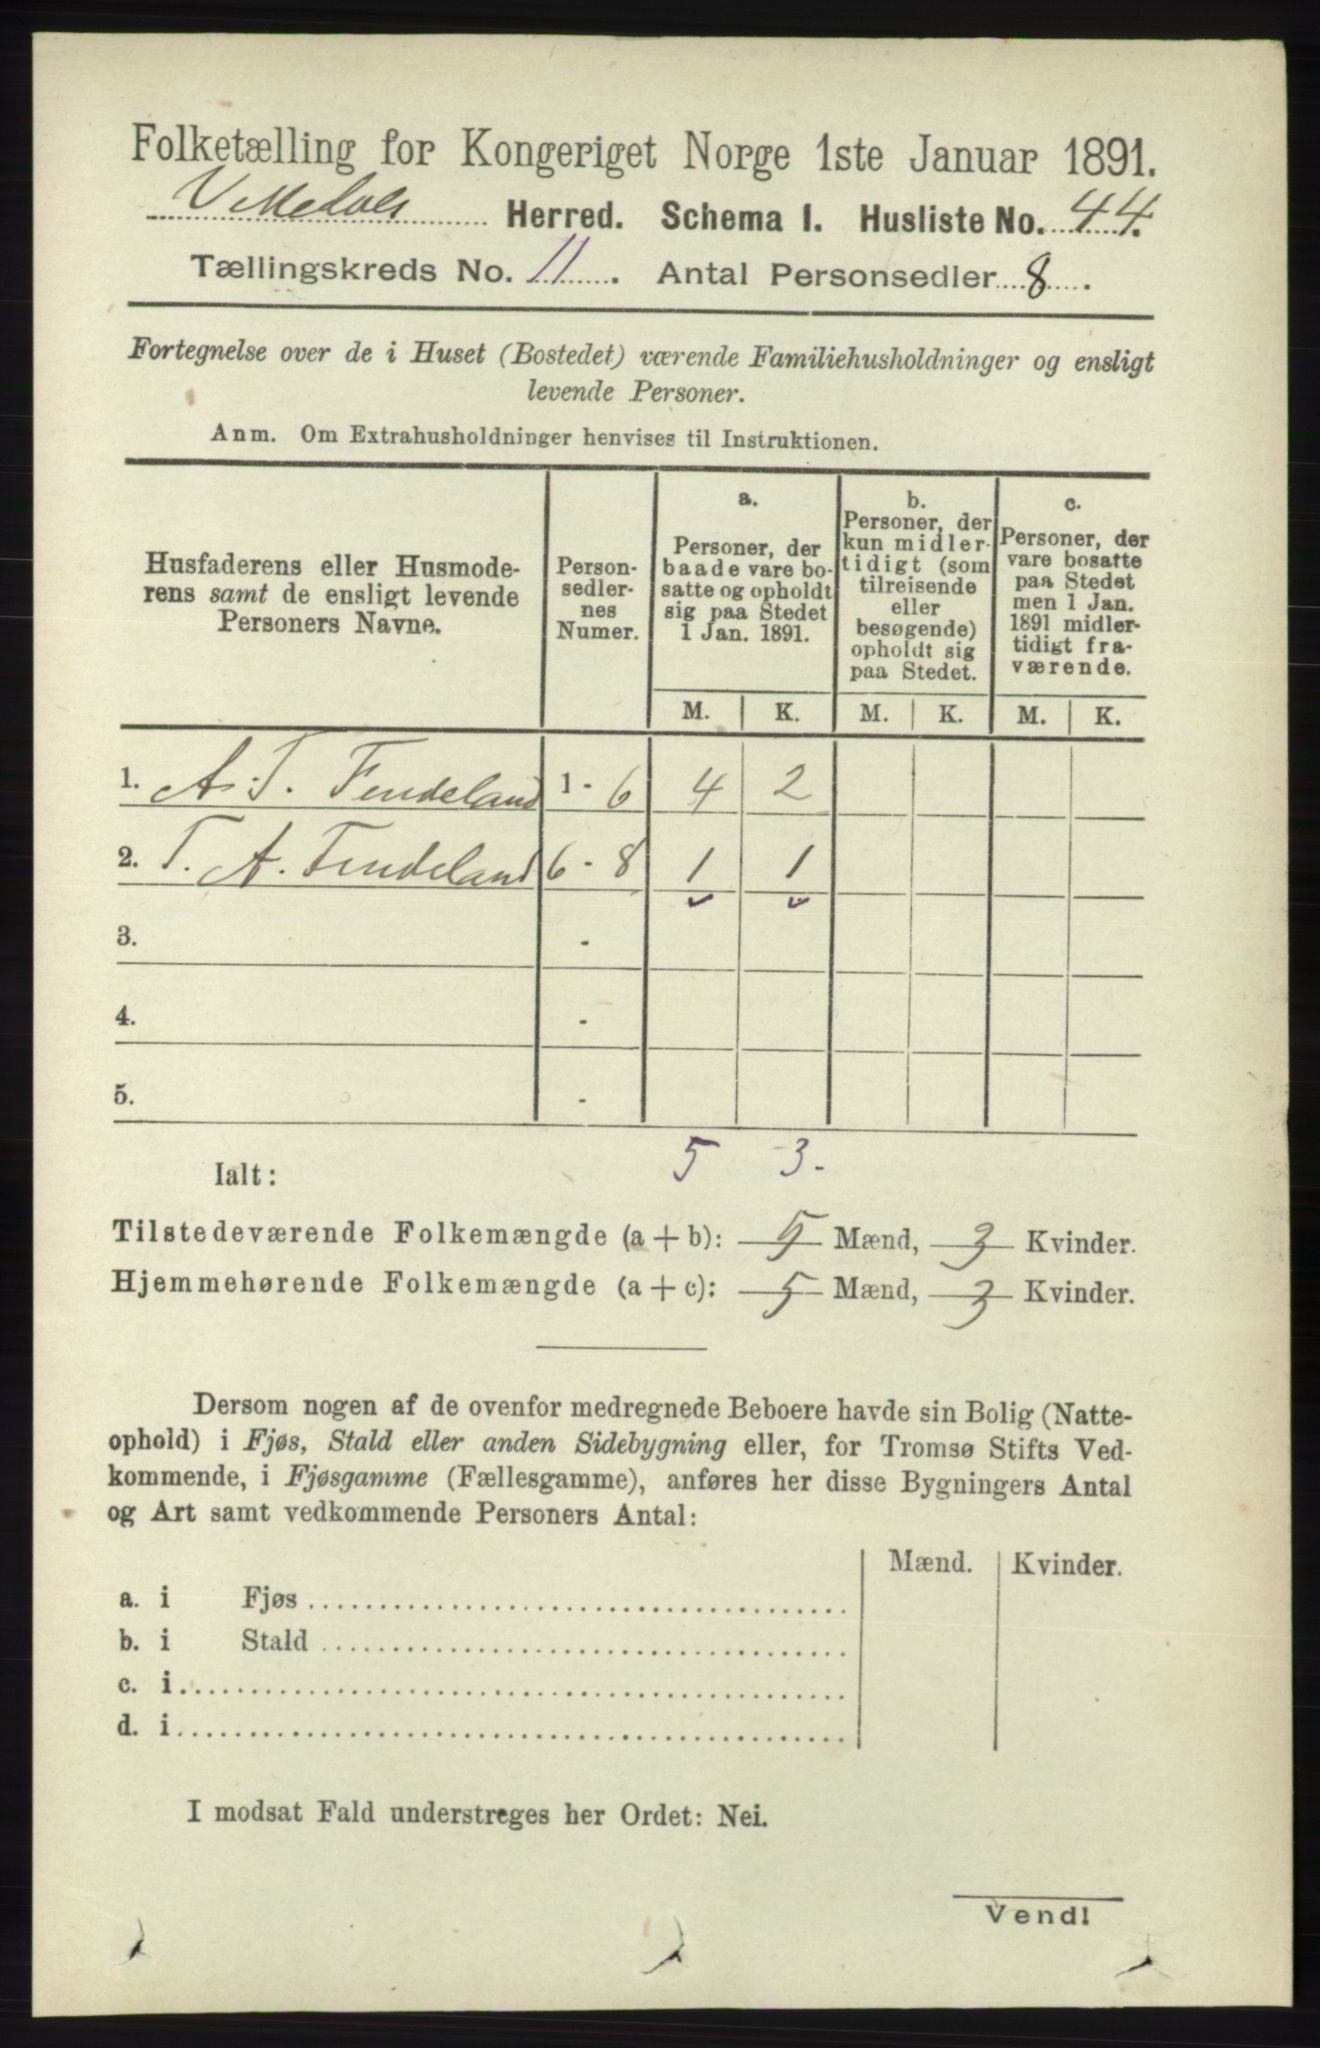 Folketælling for Kongeriget Norge 1ste Januar 1891.
Herred. Schema I. Husliste No. 44.
Tællingskreds No. 11. Antal Personsedler 8.
Fortegnelse over de i Huset (Bostedet) værende Familiehusholdninger og ensligt
levende Personer.
Anm. Om Extrahusholdninger henvises til Instruktionen.
Husfaderens eller Husmode-
rens samt de ensligt levende
Personers Navne.
Person-
sedler-
nes
Numer.
a.
Personer, der
baade vare bo-
satte og opholdt
sig paa Stedet
1 Jan. 1891.
b.
Personer, der
kun midler-
tidigt (som
tilreisende
eller
besøgende)
opholdt sig
paa Stedet.
c.
Personer, der
vare bosatte
paa Stedet
men 1 Jan.
1891 midler-
tidigt fra-
værende.
M. K. M. K. M. K.
1. A. T. Fendeland 1 - 6 4 2
2. T. A. Fendeland 6 - 8 1 1
3. -
4. -
5. -
Ialt: 5 3.
Tilstedeværende Folkemængde (a + b): 5 Mænd, 3 Kvinder.
Hjemmehørende Folkemængde (a + c): 5 Mænd, 3 Kvinder.
Dersom nogen af de ovenfor medregnede Beboere havde sin Bolig (Natte-
ophold) i Fjøs, Stald eller anden Sidebygning eller, for Tromsø Stifts Ved-
kommende, i Fjøsgamme (Fællesgamme), anføres her disse Bygningers Antal
og Art samt vedkommende Personers Antal:
Mænd. Kvinder.
a. i Fjøs
b. i Stald
c. i
d. i
I modsat Fald understreges her Ordet: Nei.
Vend!